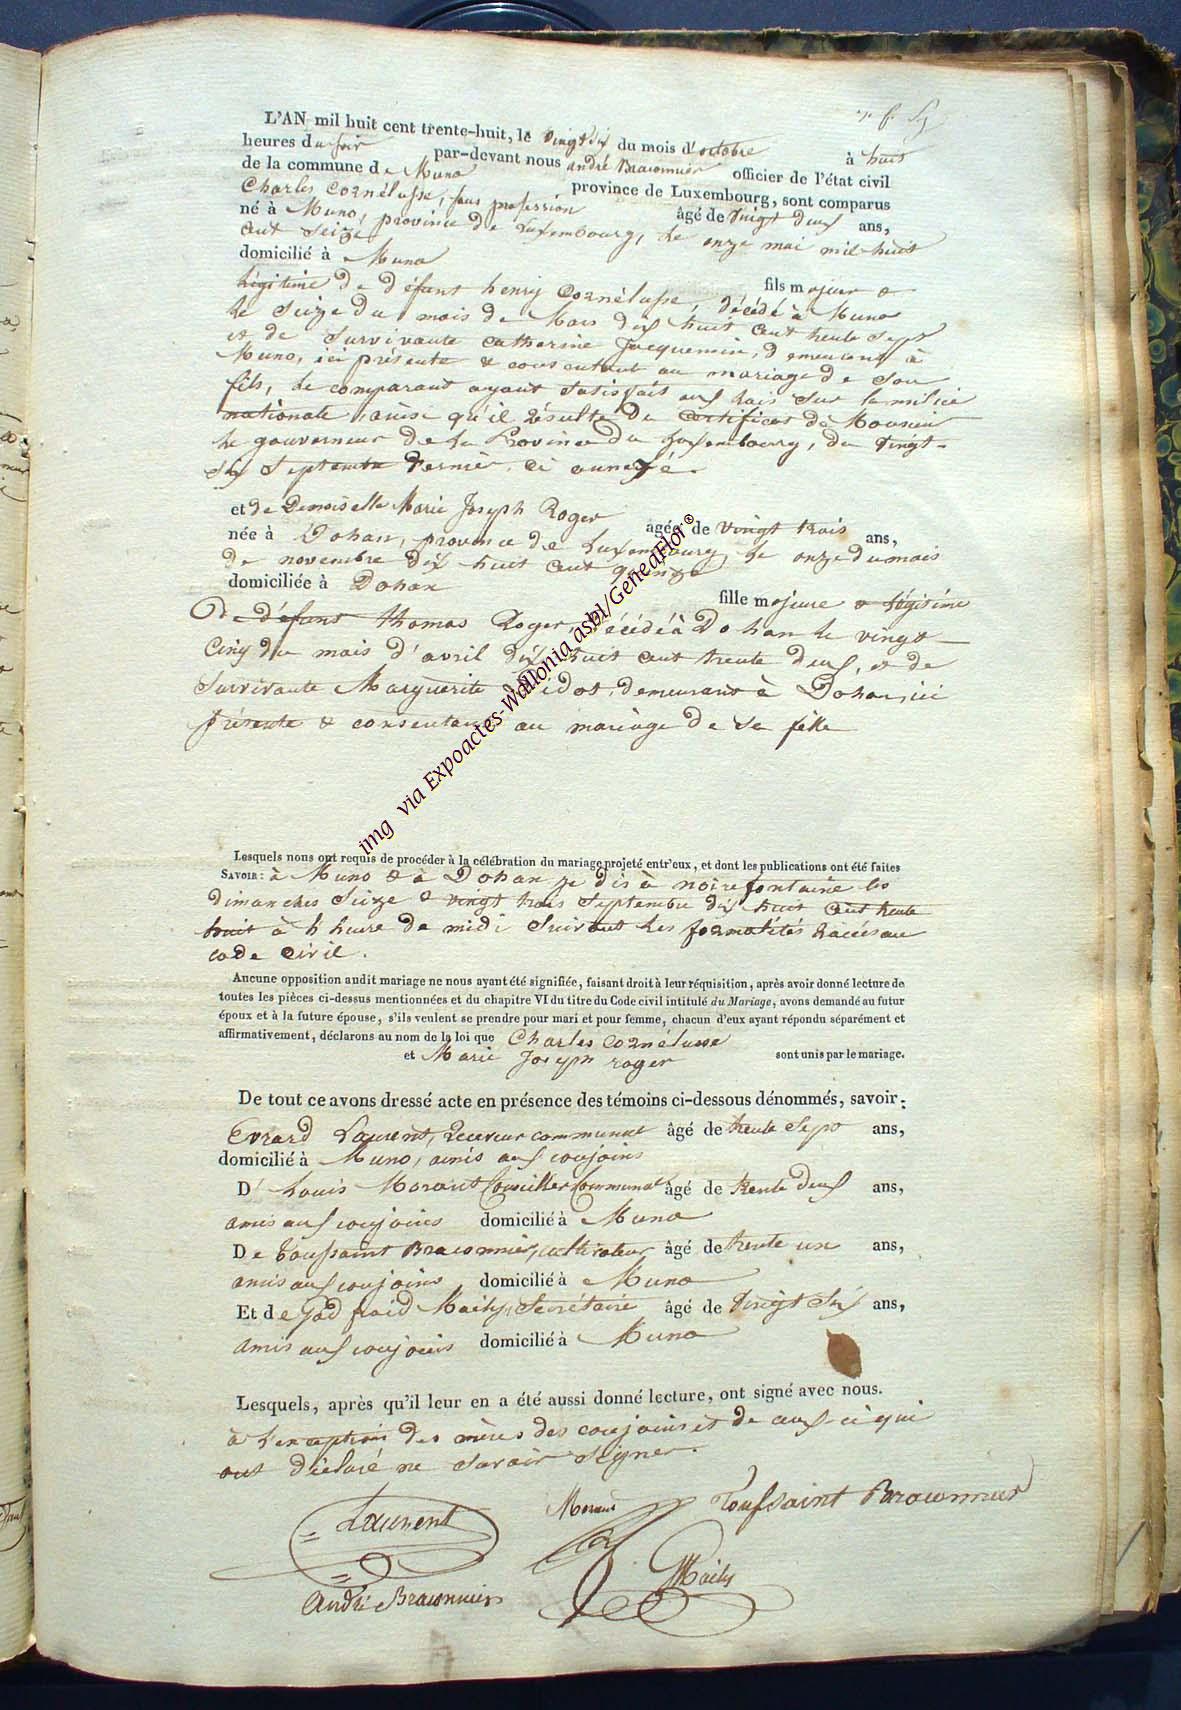 L'AN mil huit cent trente-huit, le vingt six du mois d'octobre à huit
heures du soir par-devant nous andré Braconnier officier de l'état civil
de la commune de Muno province de Luxembourg, sont comparus
Charles Cornélusse, sans profession âgé de vingt deux ans,
né à Muno, province de Luxembourg, le onze mai mil huit
cent seize
domicilié à Muno fils majeur &
légitime de défunt henry Cornélusse, décédé à Muno
le seize du mois de Mars dix huit cent trente sept
et de survivante Catherine Jacquemin, demeurant à
Muno, ici présente & consentant au mariage de son
fils, le comparant ayant satisfait aux lois sur la milice
nationale, ainsi qu'il résulte du certificat de Monsieur
le gouverneur de la Province du Luxembourg, du vingt-
six septembre dernier, ci annexé.
et de Demoiselle Marie Joseph Roger agée de vingt trois ans,
née à Dohan, province de Luxembourg, le onze du mois
de novembre dix huit cent quinze
domiciliée à Dohan fille majeure & légitime
De défunt thomas Roger, décédé à Dohan le vingt
Cinq du mois d'avril dix huit cent trente deux, et de
Survivante Marguerite demeurant à Dohan, ici
présente & consentant au mariage de sa fille
Lesquels nous ont requis de procéder à la célébration du mariage projeté entr'eux, et dont les publications ont été faites
SAVOIR: à Muno & à Dohan je dis à noirefontaine les
dimanches seize & vingt trois septembre dix huit cent trente
huit à l'heure de midi suivant les formalités au
code civil.
Aucune opposition audit mariage ne nous ayant été signifiée, faisant droit à leur réquisition, après avoir donné lecture de
toutes les pièces ci-dessus mentionnées et du chapitre VI du titre du Code civil intitulé du Mariage, avons demandé au futur
époux et à la future épouse, s'ils veulent se prendre pour mari et pour femme, chacun d'eux ayant répondu séparément et
affirmativement, déclarons au nom de la loi que Charles Cornélusse
et Marie Joseph roger sont unis par le mariage.
De tout ce avons dressé acte en présence des témoins ci-dessous dénommés, savoir:
Evrard Laurent, Receveur communal âgé de trente sept ans,
domicilié à Muno, amis aux conjoins
D' Louis Morant Conseiller Communal âgé de trente deux ans,
amis aux conjoins domicilié à Muno
De Toussaint Braconnier, cultivateur âgé de trente un ans,
amis aux conjoins domicilié à Muno
Et de Godfroid Maily, Secrétaire âgé de vingt six ans,
amis aux conjoins domicilié à Muno
Lesquels, après qu'il leur en a été aussi donné lecture, ont signé avec nous.
à l'exception des mères des conjoins et de ceux-ci qui
ont déclaré ne savoir signer.
Laurent Morant Toussaint Braconnier
André Braconnier Maily
img via Expoactes-Wallonia asbl/GeneaFlor®